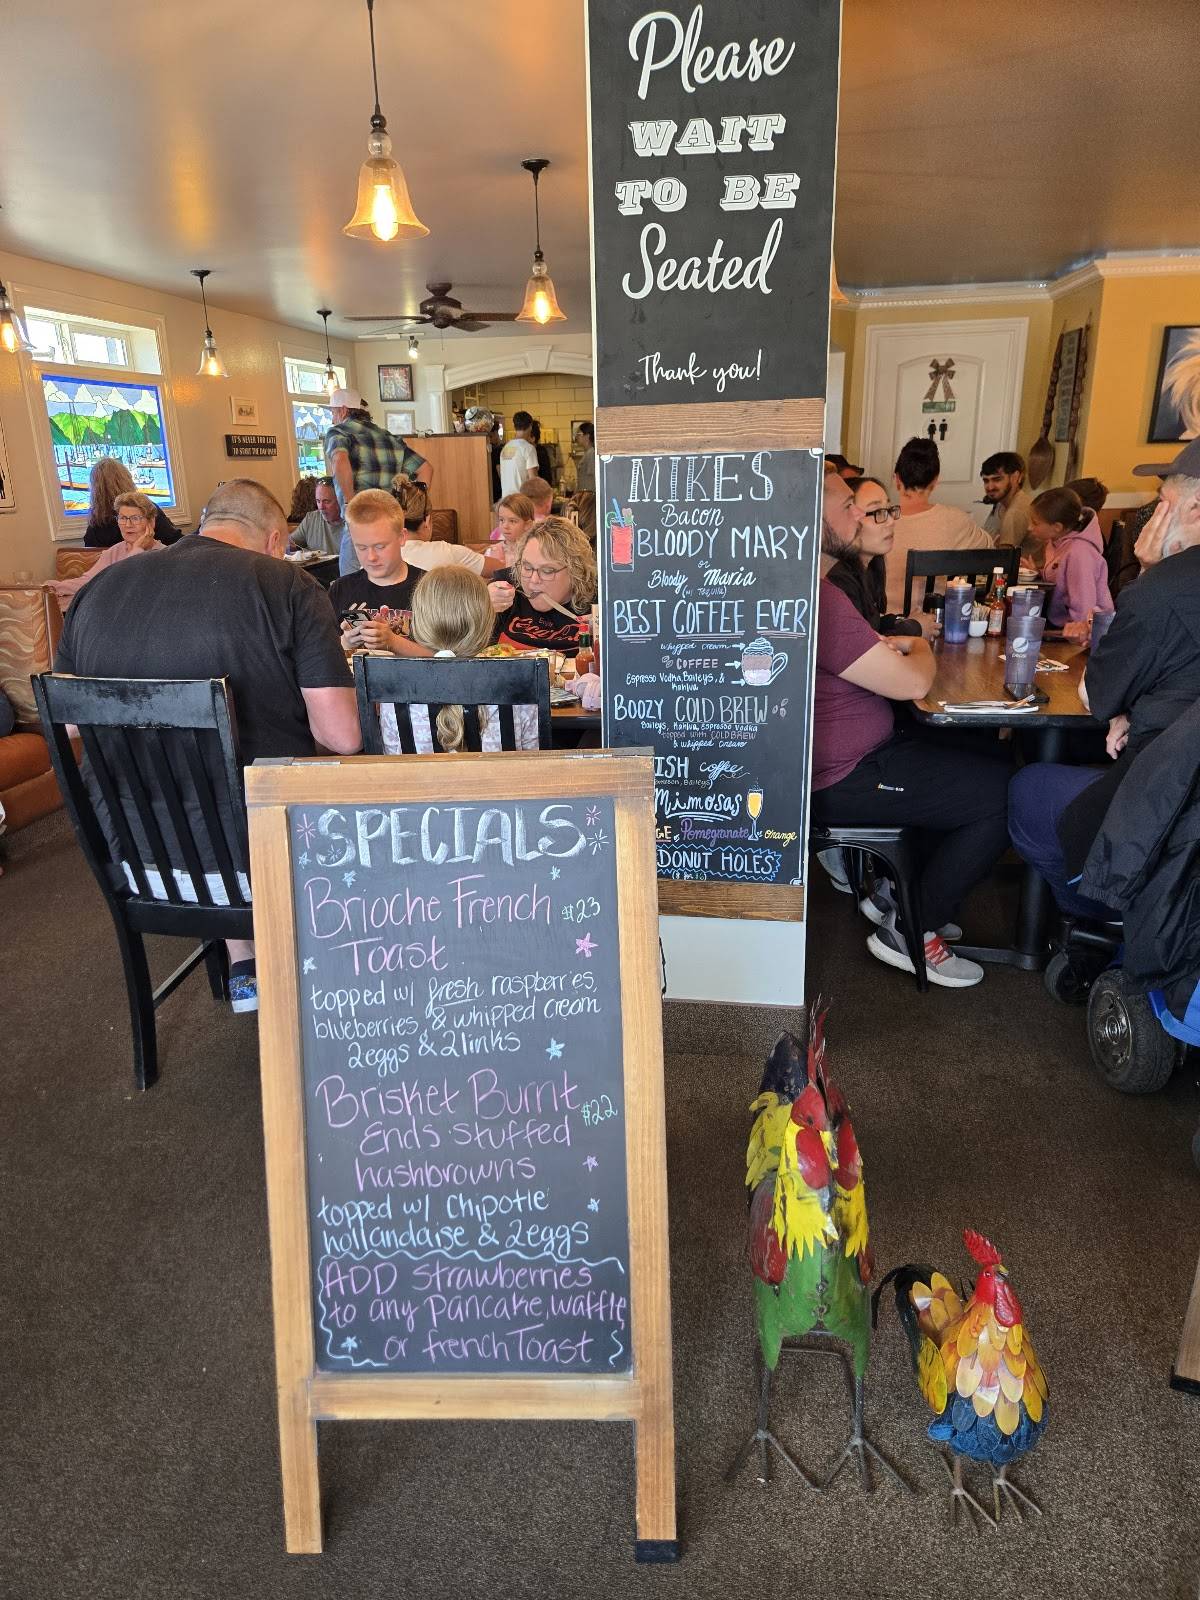 Please
WAIT
TO BE
Seated
Thank you!
IT'S NEVER TOO LATE
TO START THE DAY OVER
MIKES
Bacon
BLOODY MARY
or
Bloody Maria
(w/ Tequila)
BEST COFFEE EVER
whipped cream
COFFEE
Espresso Vodka, Baileys, &
Kahlua
BOOZY COLD BREW
Baileys, Kahlua, Espresso Vodka
topped with COLD BREW
& whipped cream
ISH coffee
Baileys)
Mimosas
GE, Pomegranate, Orange
DONUT HOLES
SPECIALS
Brioche French $23
Toast
topped w/ fresh raspberries,
blueberries, & whipped cream
2 eggs & 2 links
Brisket Burnt $22
Ends stuffed
hashbrowns
topped w/ Chipotle
hollandaise & 2 eggs
ADD strawberries
to any pancake, waffle,
or french Toast
pepsi
Enjoy